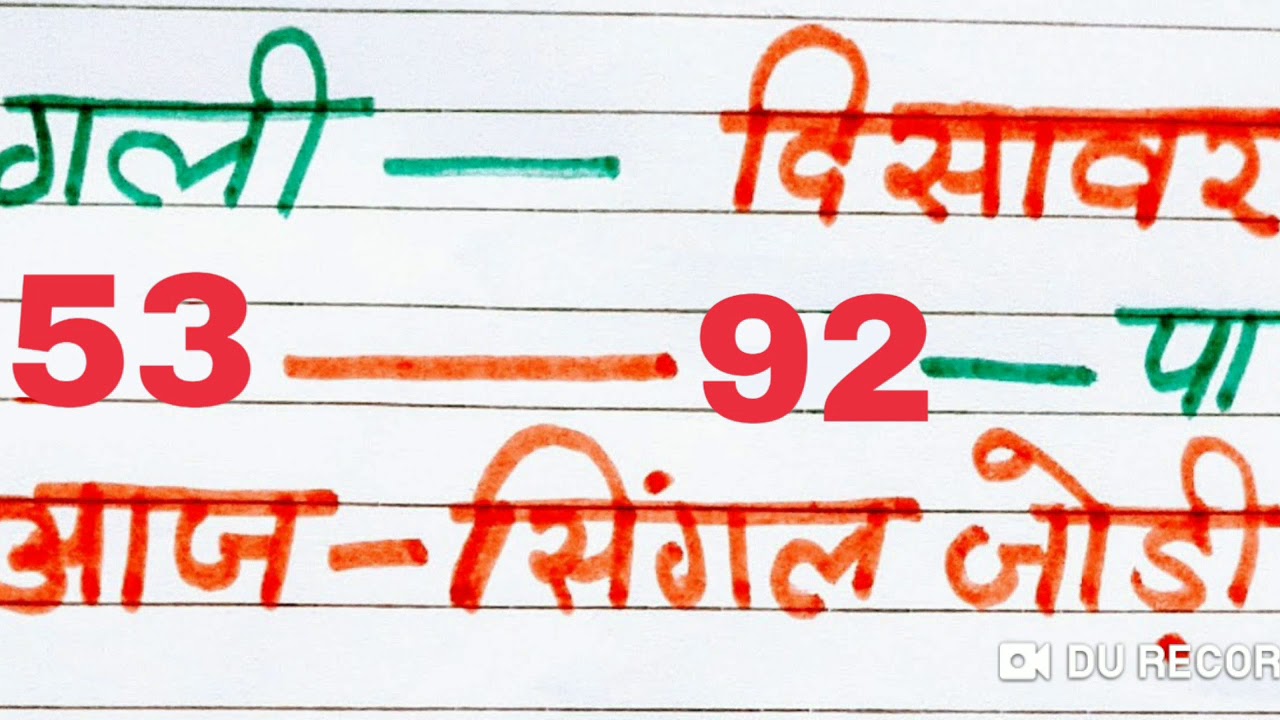 गली — दिसावर
53 — 92 — पा
आज - सिंगल जोड़ी
DU RECOR